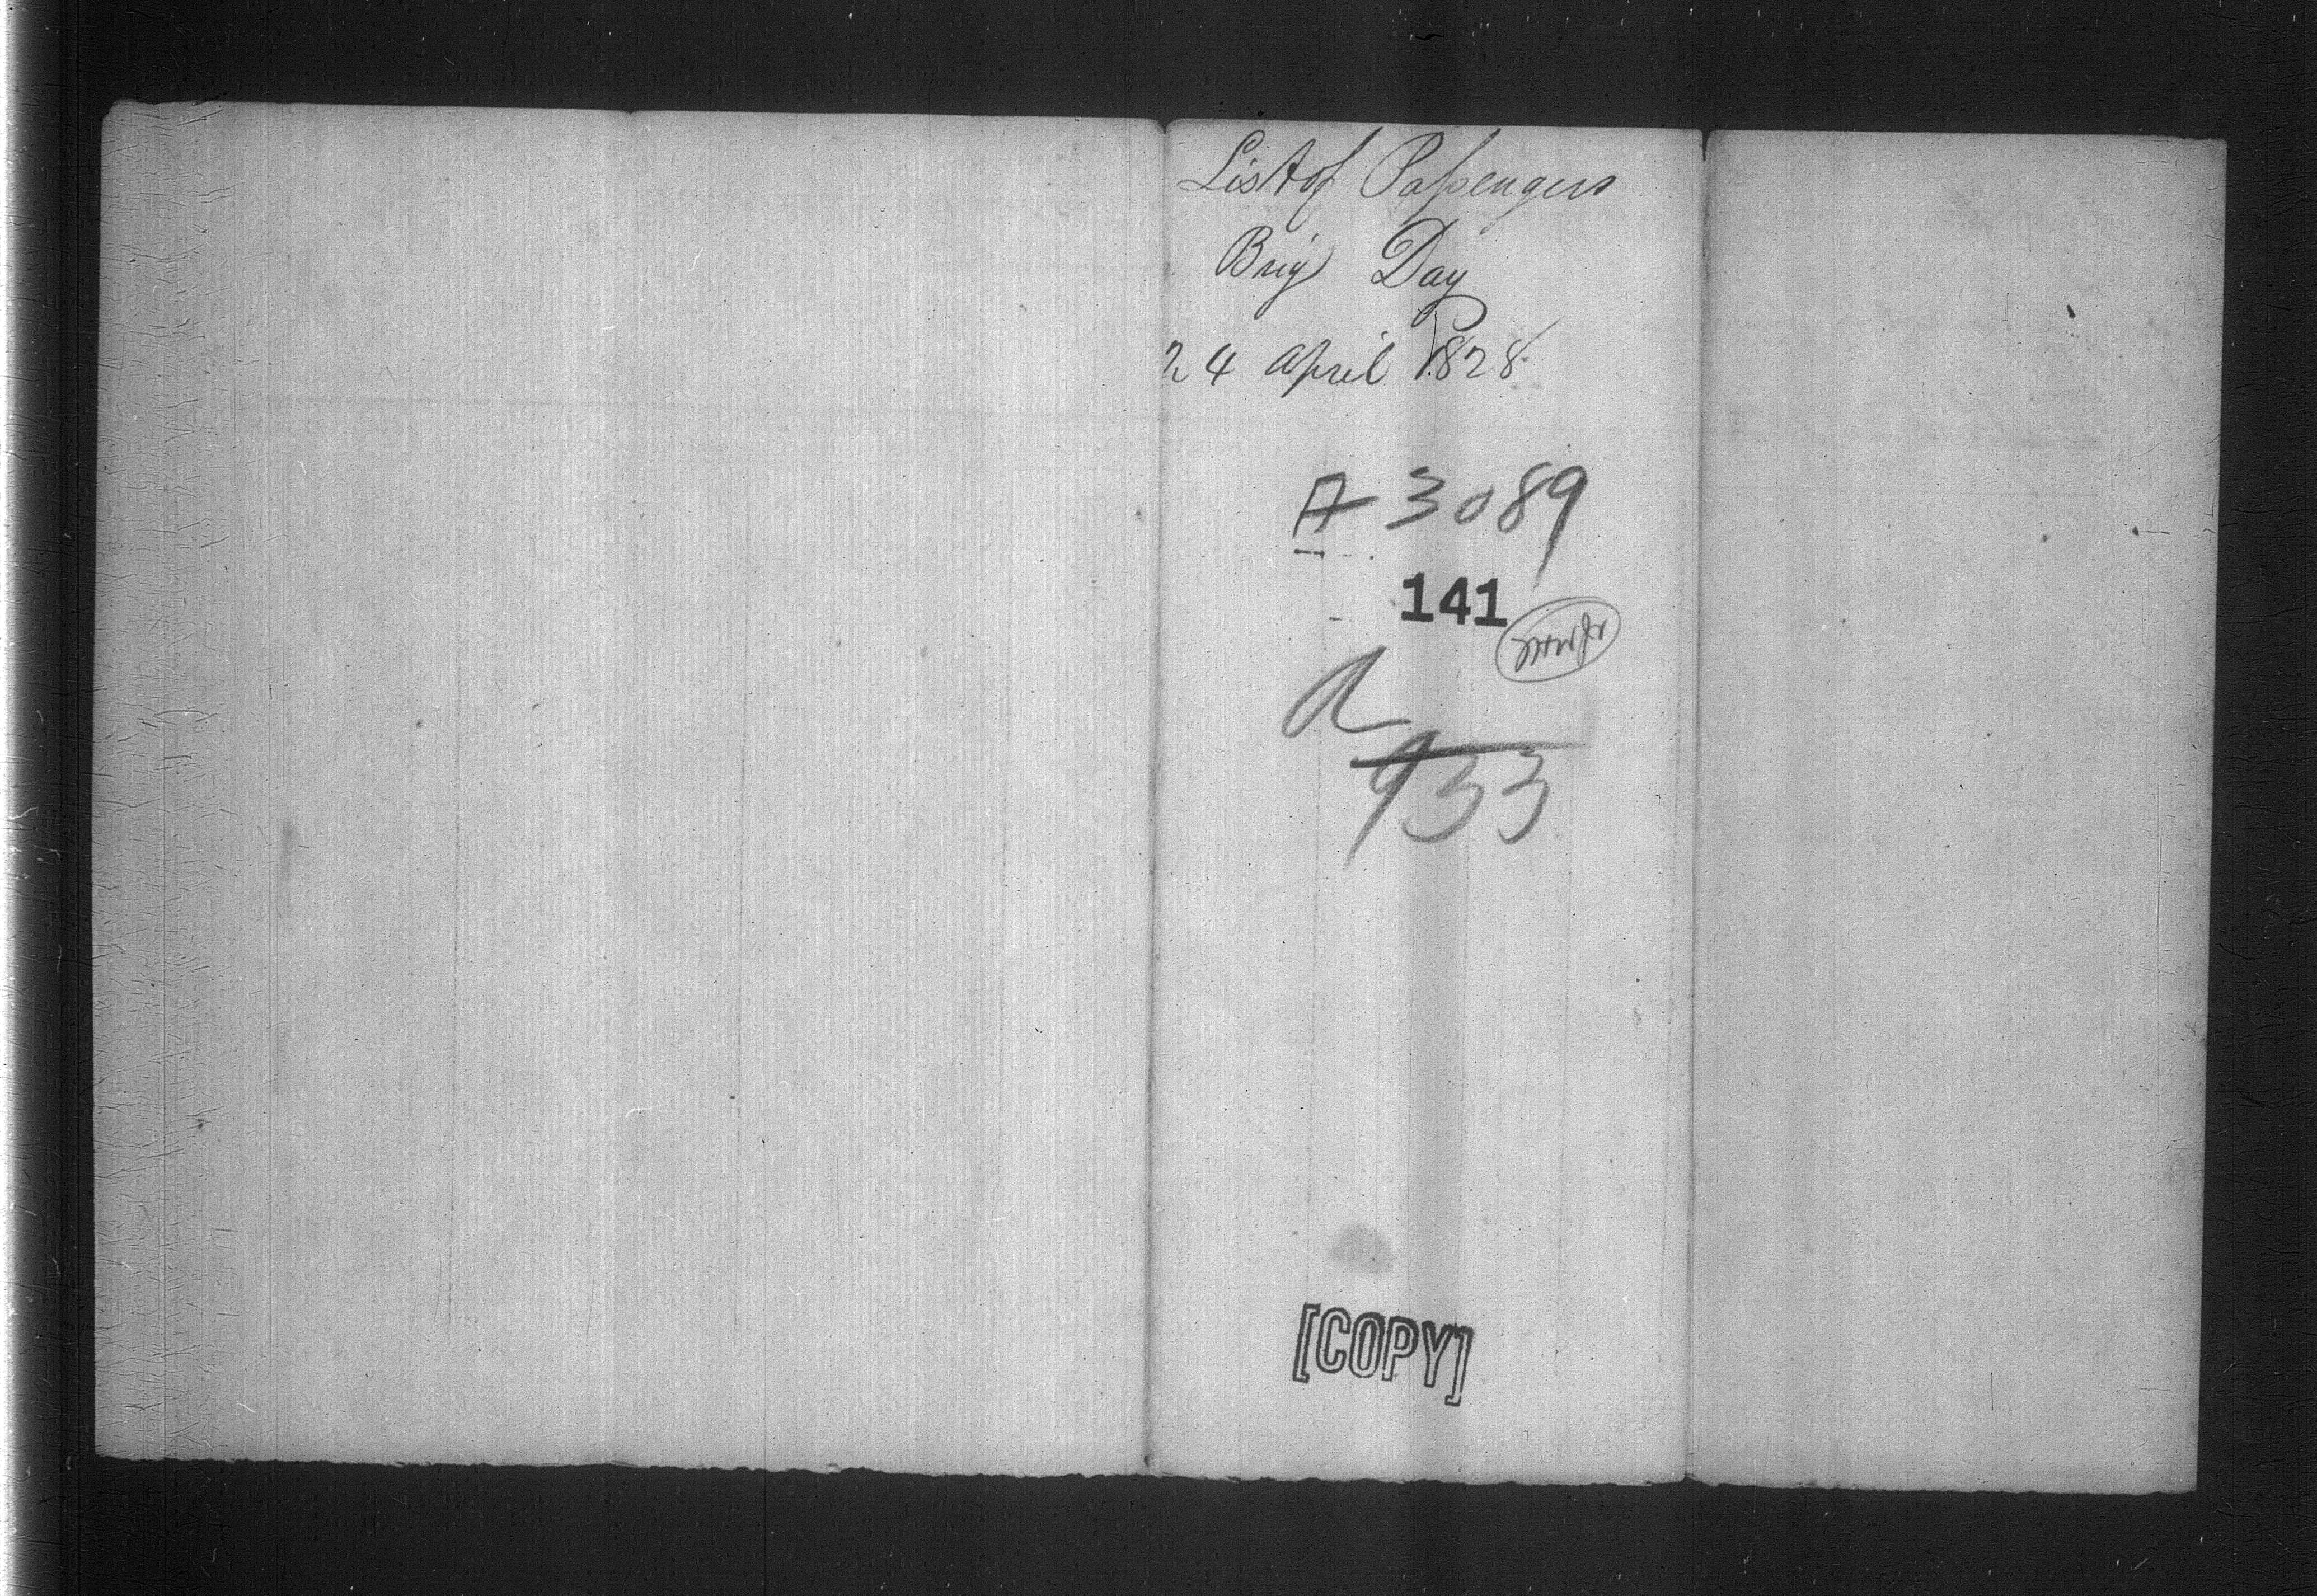 List of Passengers
Brig Day
24 April 1828
A 3089
141
A
933
[COPY]